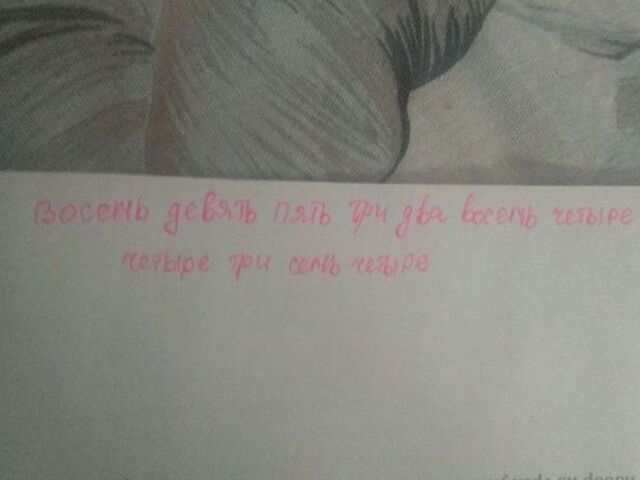 восемь девять пять три два восемь четыре
четыре три семь четыре